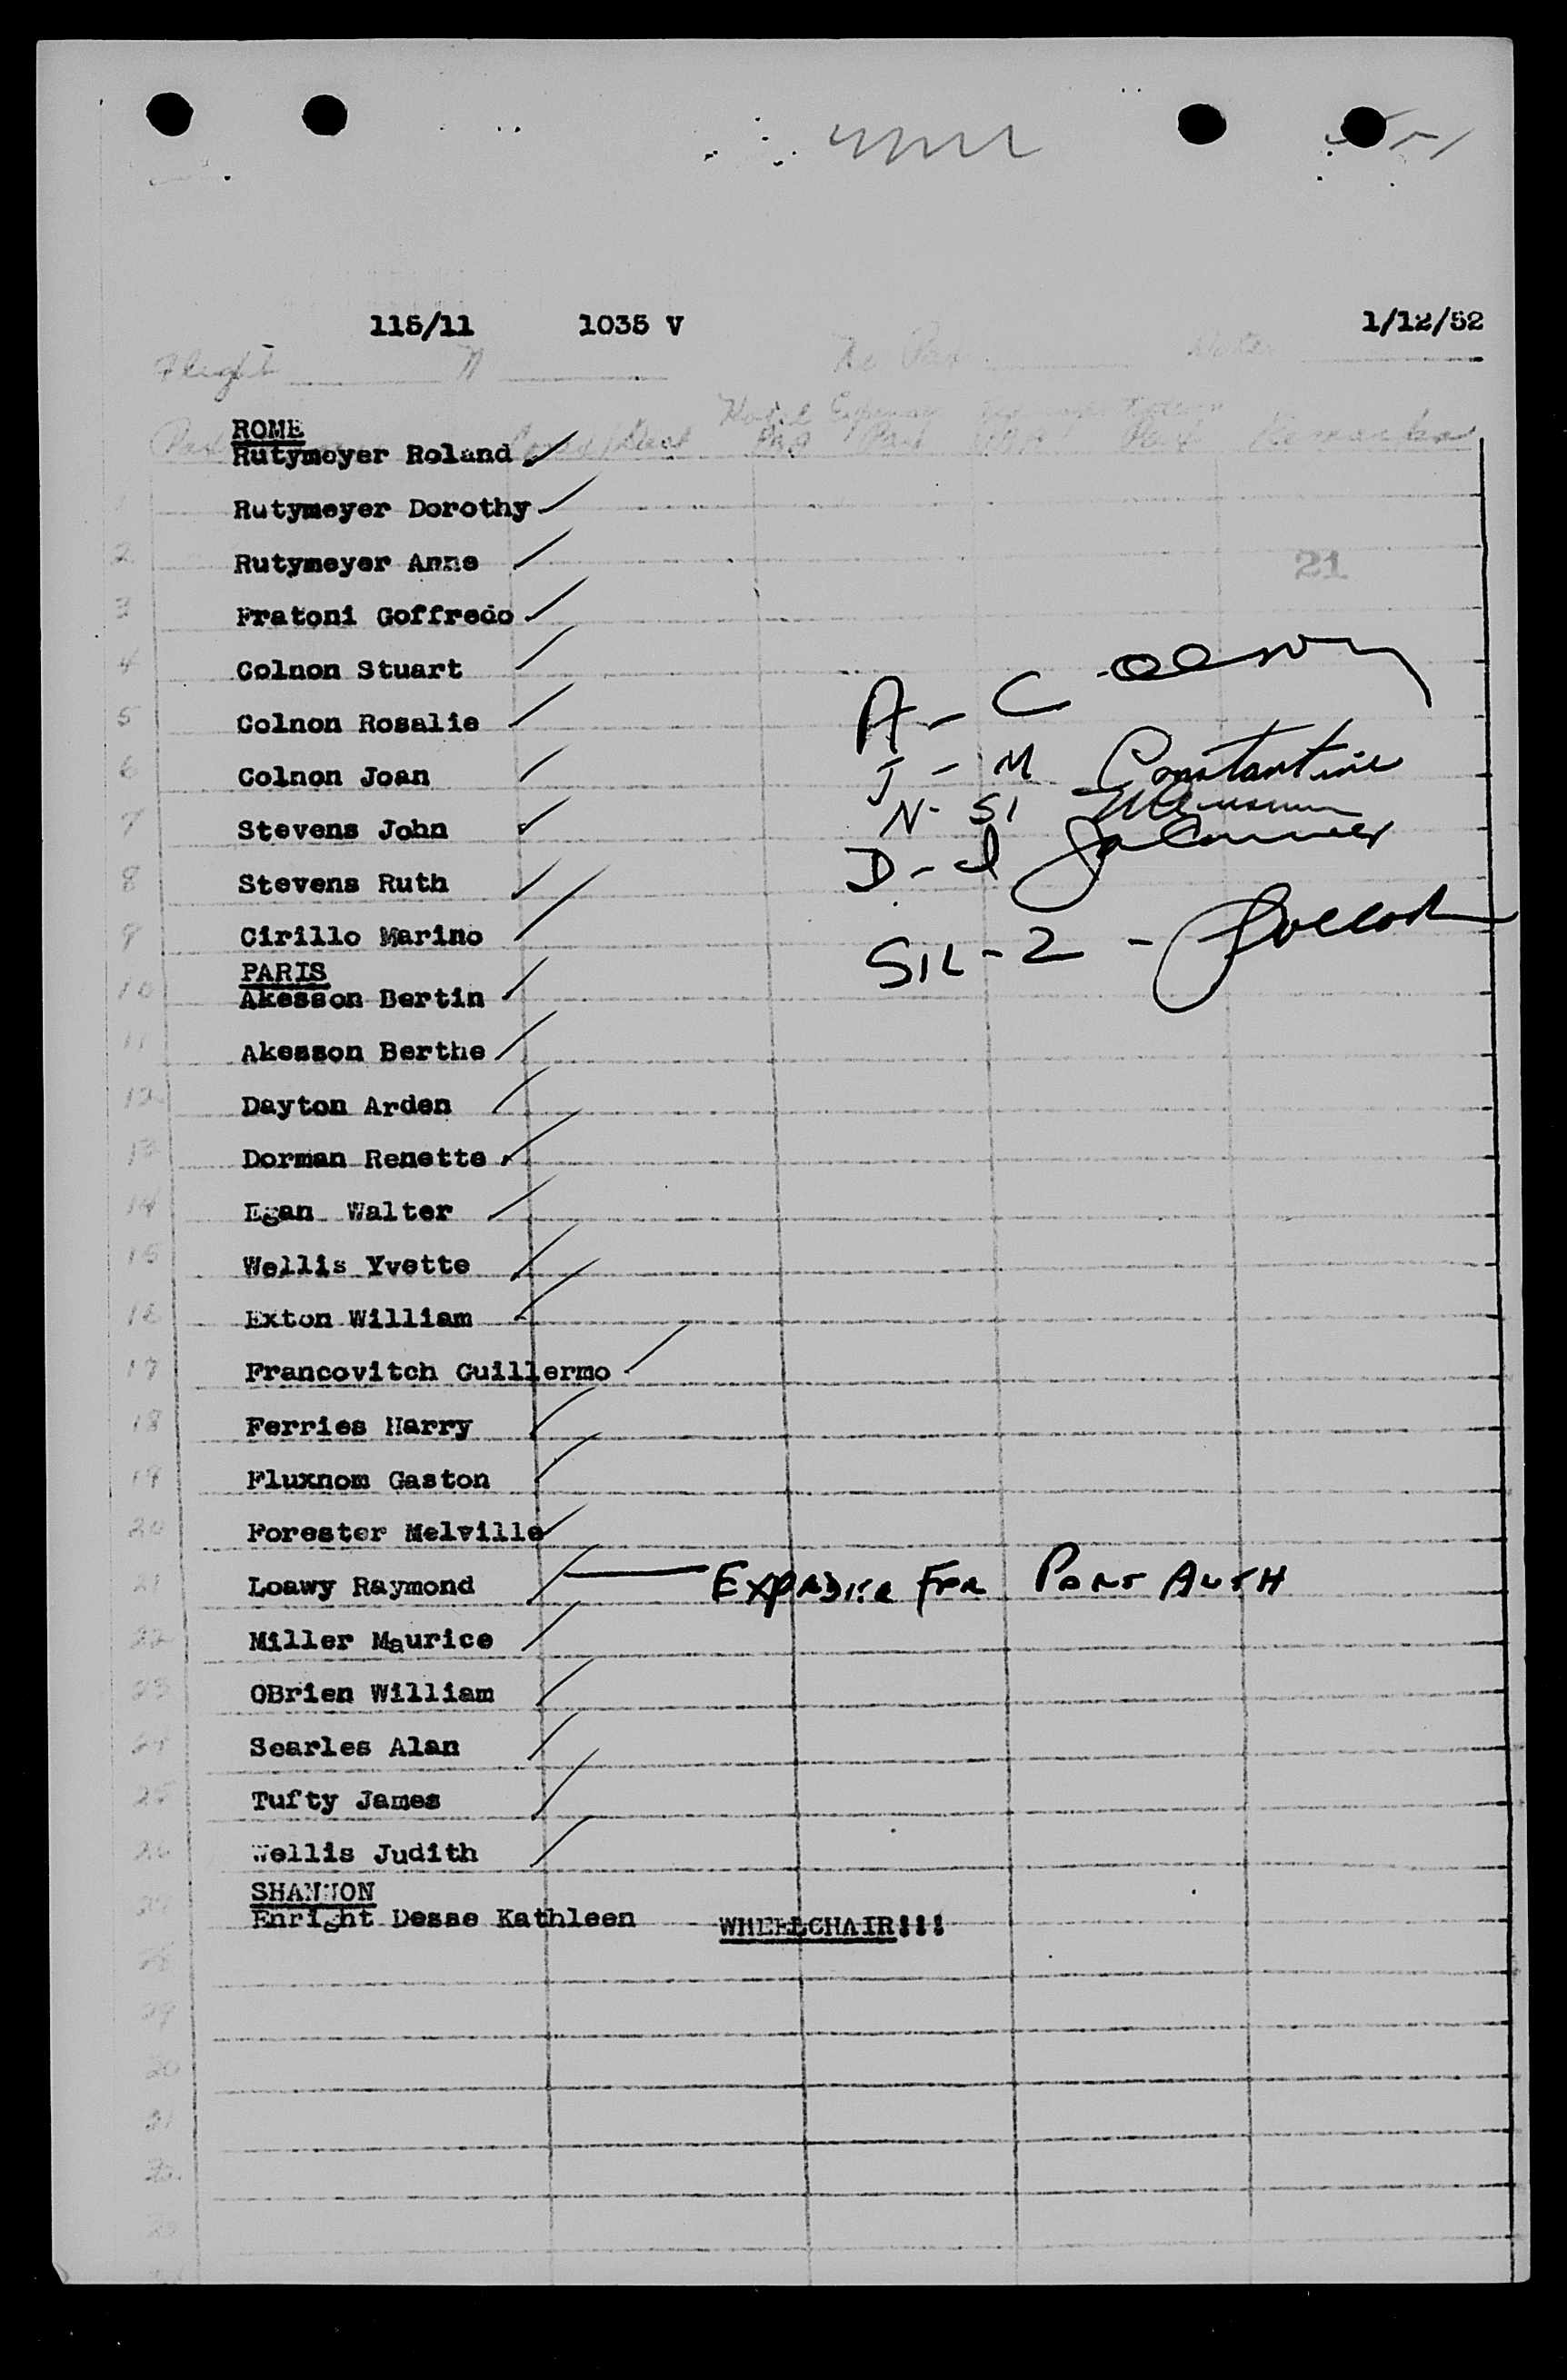 115/11 1035 V 1/12/52
Flight N No Pax Date
Hotel
Remarks
ROME
Rutymeyer Roland
Rutymeyer Dorothy
2 Rutymeyer Anne
21
3 Fratoni Goffredo
4 Colnon Stuart
A - C
5 Colnon Rosalie
6 Colnon Joan
J - M Constantine
N - SI
7 Stevens John
8 Stevens Ruth
D - I
9 Cirillo Marino
SIL - 2 -
PARIS
10 Akesson Bertin
11 Akesson Berthe
12 Dayton Arden
13 Dorman Renette
14 Egan Walter
15 Wellis Yvette
16 Exton William
17 Francovitch Guillermo
18 Ferries Harry
19 Fluxnom Gaston
20 Forester Melville
21 Loawy Raymond EXPEDITE FOR PORT AUTH
22 Miller Maurice
23 OBrien William
24 Searles Alan
25 Tufty James
26 Wellis Judith
SHANNON
27 Enright Desse Kathleen WHEELCHAIR!!!
28
29